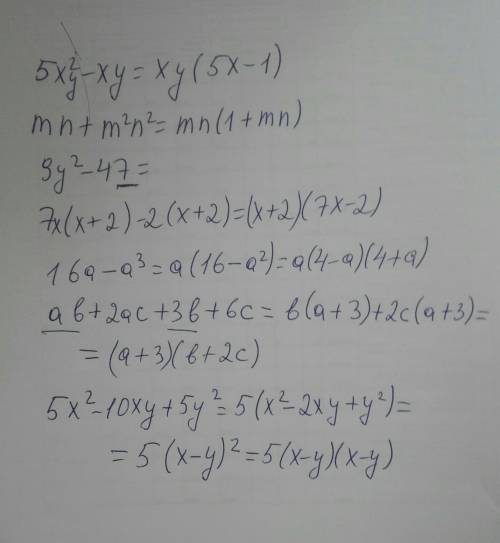 5x²y-xy=xy(5x-1)
mn+m²n²=mn(1+mn)
9y²-47=
7x(x+2)-2(x+2)=(x+2)(7x-2)
16a-a³=a(16-a²)=a(4-a)(4+a)
ab+2ac+3b+6c=b(a+3)+2c(a+3)=
=(a+3)(b+2c)
5x²-10xy+5y²=5(x²-2xy+y²)=
=5(x-y)²=5(x-y)(x-y)